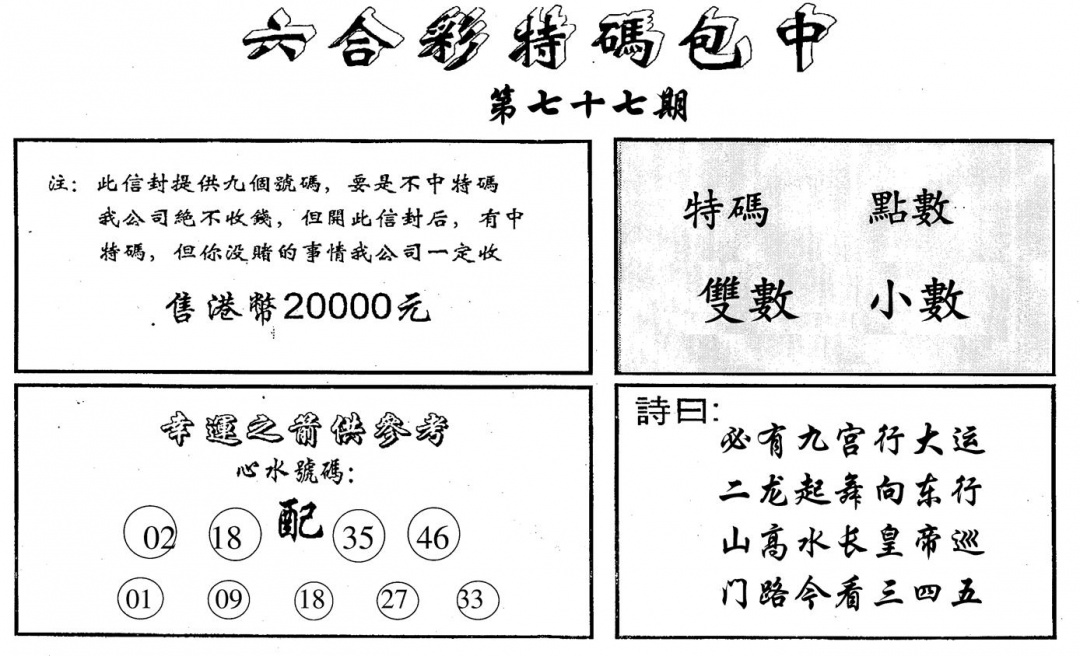 六合彩特碼包中
第七十七期
注：此信封提供九個號碼，要是不中特碼
我公司絕不收錢，但開此信封后，有中
特碼，但你没賭的事情我公司一定收
售港幣20000元
特碼 點數
雙數 小數
幸運之箭供參考
心水號碼：
02 18 配 35 46
01 09 18 27 33
詩曰：
必有九宫行大运
二龙起舞向东行
山高水长皇帝巡
门路今看三四五